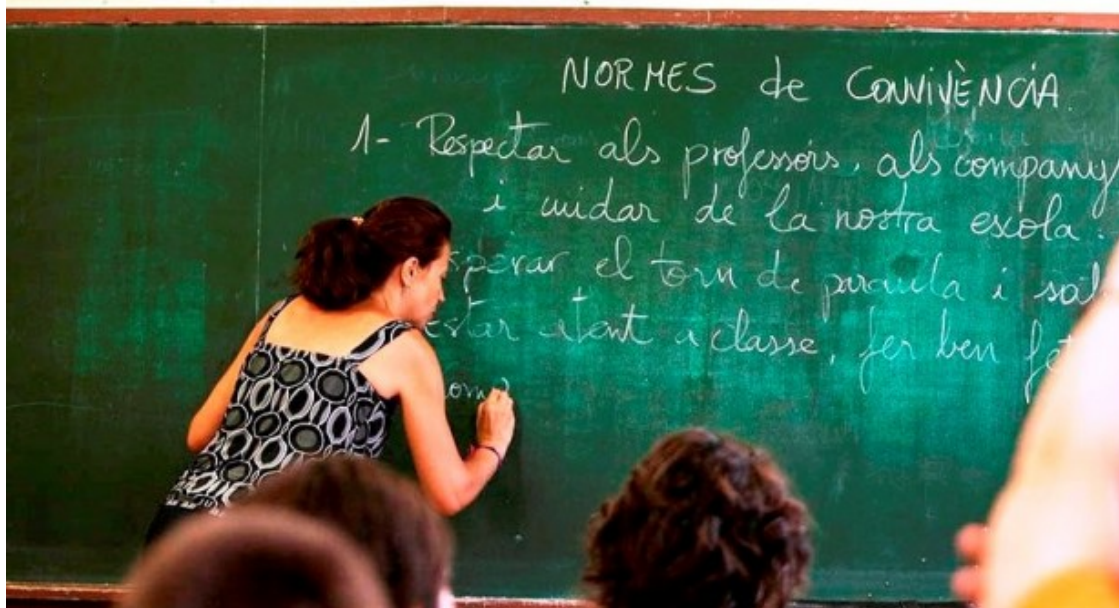 NORMES de CONVIVÈNCIA.
1- Respectar als professors, als companys
i cuidar de la nostra escola.
sperar el torn de paraula i
estar atent a classe, fer ben